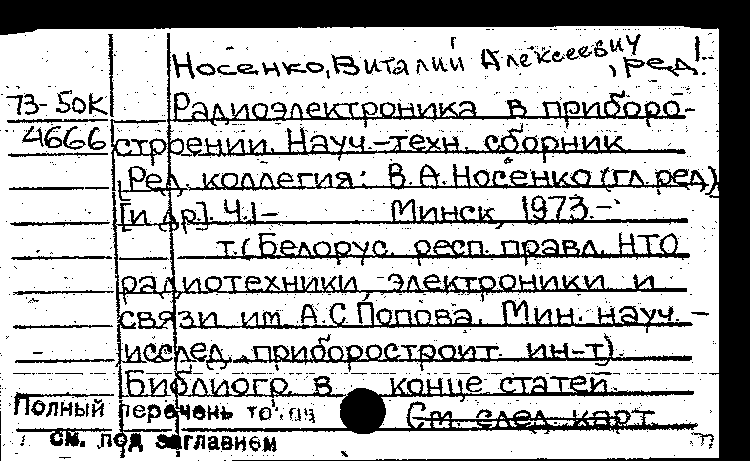 Носенко, Виталий Алексеевич
, ред.
73-50К Радиоэлектроника в приборо-
4666 строении. Науч.-техн. сборник
[Ред. коллегия: В.А. Носенко (гл. ред)
[и др]. Ч.1- Минск, 1973.-
т. (Белорус. респ. правл. НТО
радиотехники, электроники и
связи им. А.С Попова. Мин. науч.-
исслед. приборостроит. ин-т).
Библиогр. в конце статей.
Полный перечень См. след. карт.
см. под заглавием